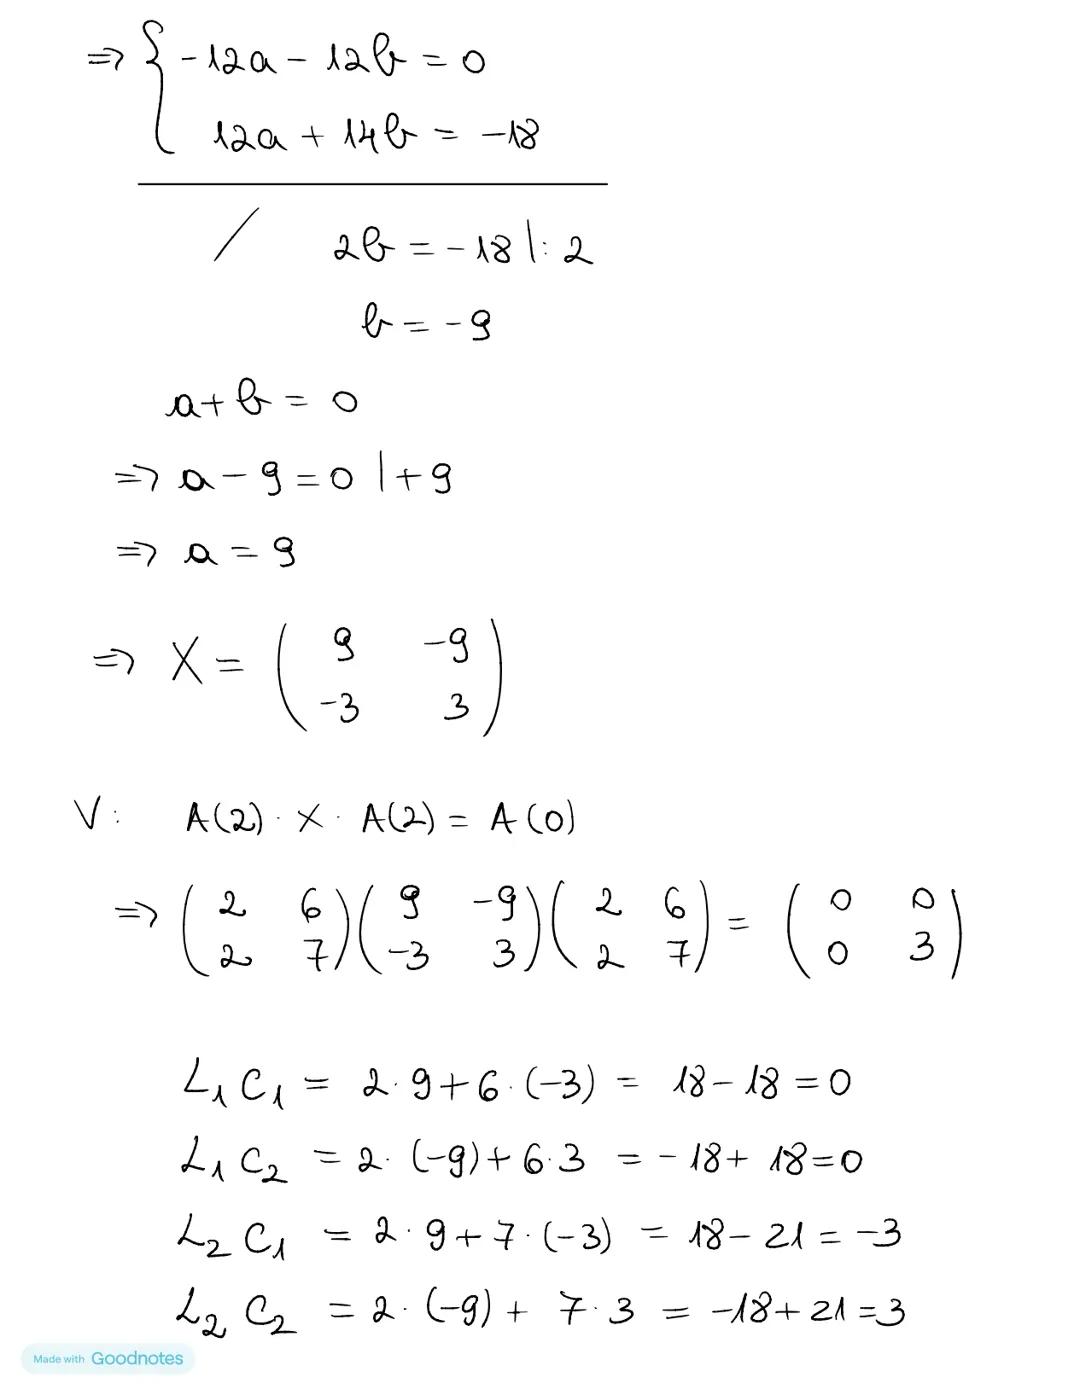 ⇒ { -12a - 12b = 0
12a + 14b = -18
/ 2b = -18 |: 2
b = -9
a + b = 0
⇒ a - 9 = 0 |+9
⇒ a = 9
⇒ X = ( 9 -9
-3 3 )
V: A(2) · X · A(2) = A(0)
⇒ ( 2 6 ) ( 9 -9 ) ( 2 6 ) = ( 0 0 )
( 2 7 ) ( -3 3 ) ( 2 7 ) ( 0 3 )
L₁ C₁ = 2 · 9 + 6 · (-3) = 18 - 18 = 0
L₁ C₂ = 2 · (-9) + 6 · 3 = -18 + 18 = 0
L₂ C₁ = 2 · 9 + 7 · (-3) = 18 - 21 = -3
L₂ C₂ = 2 · (-9) + 7 · 3 = -18 + 21 = 3
Made with Goodnotes